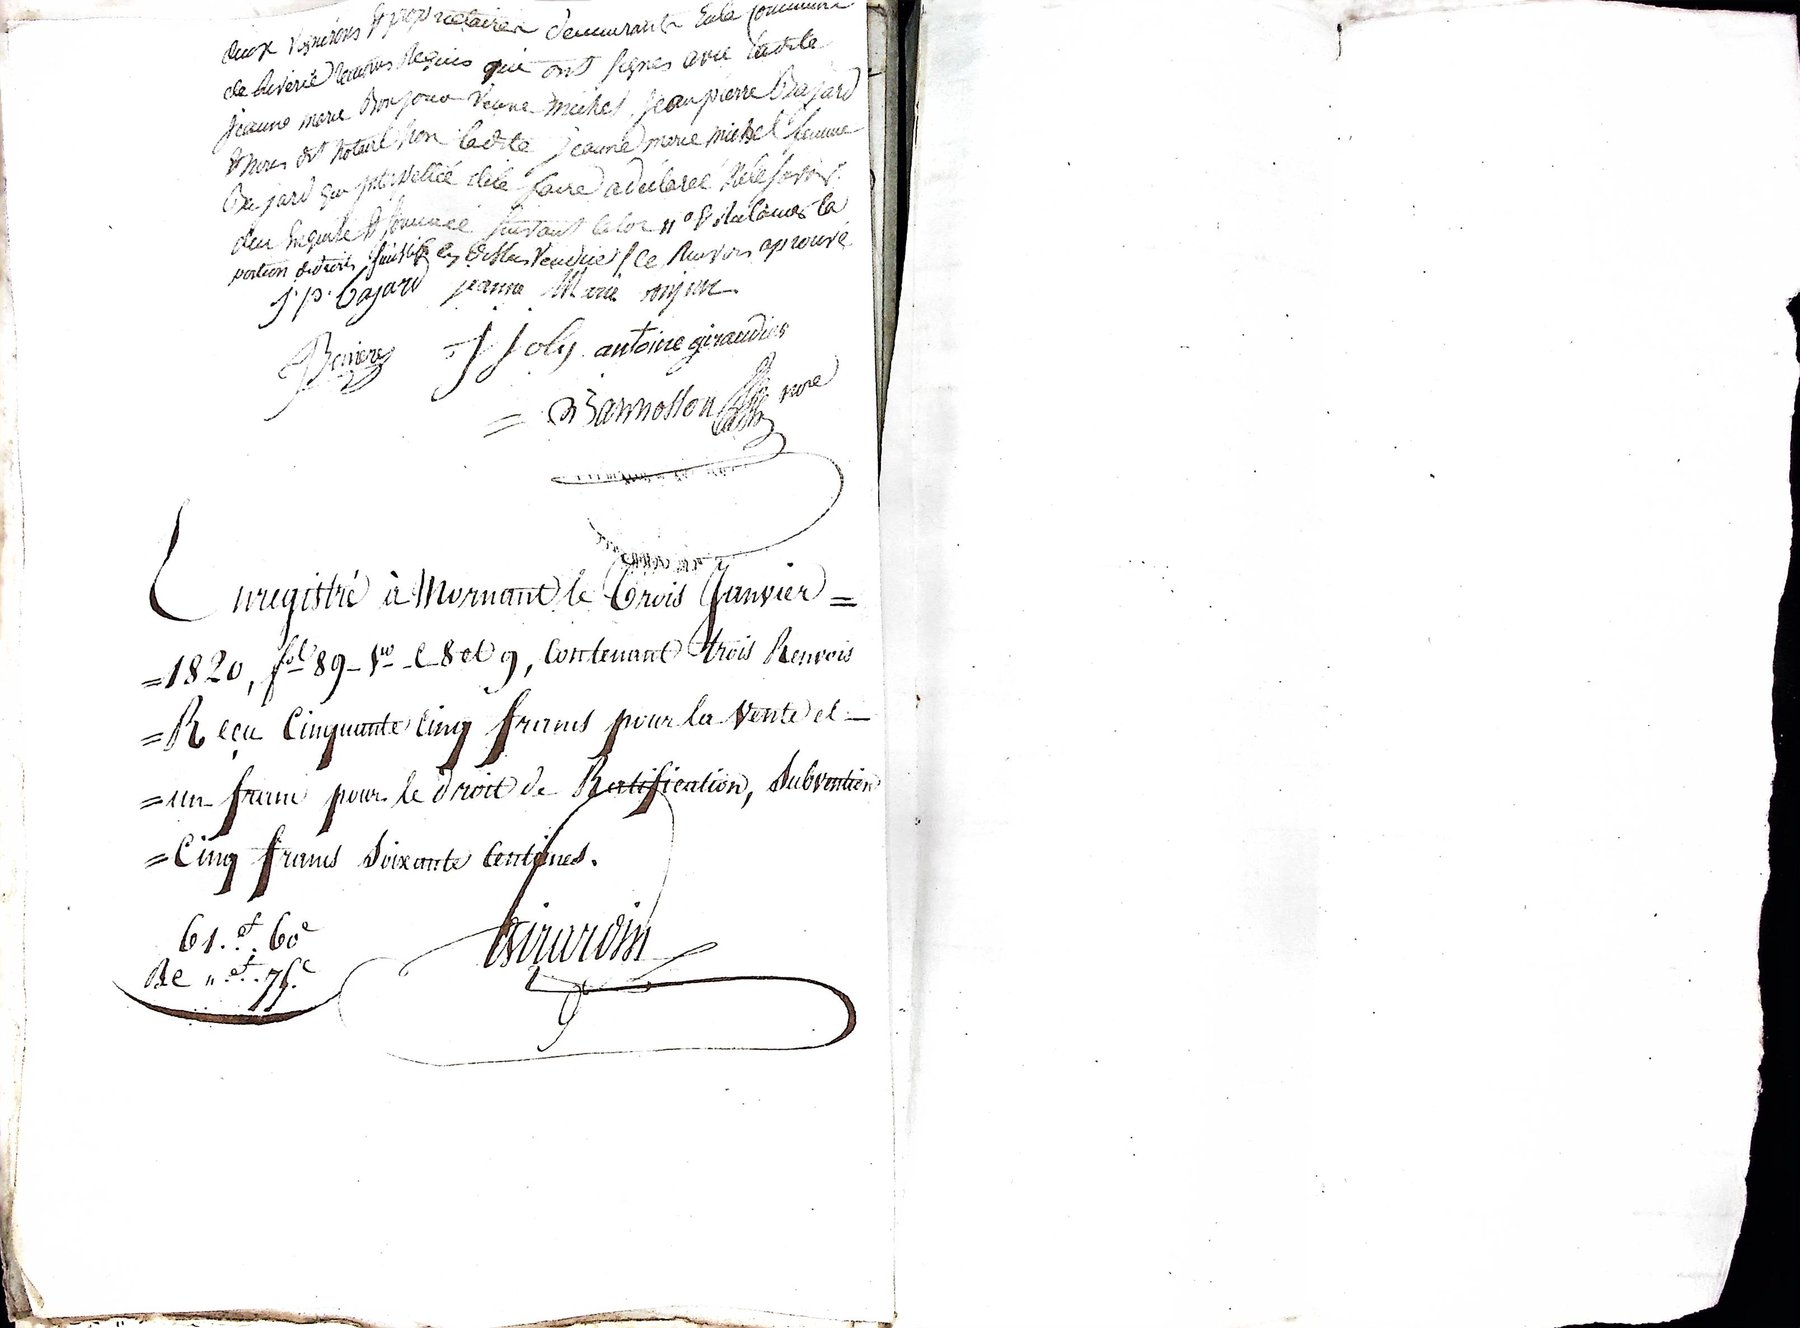 deux vignerons & propriétaires demeurants en la commune
de Riverie témoins requis qui ont signés avec ladite
jeanne marie Bonjour veuve michel, jean pierre Bajard
& nous dit notaire non ladite jeanne marie michel femme
Bajard qui interpellée de le faire a déclaré ne le savoir
deu enquise & sommée suivant la loi
portion vendue ce renvoi aprouvé
j. p. Bajard jeanne Marie onjour
Reniere J Joly antoine giraudier
= Bannosson nore
Enregistré à Mornant le Trois Janvier =
= 1820, fol 89 - vo - c 8 et 9, contenant trois Renvois
= Reçu Cinquante cinq francs pour la vente et -
= un franc pour le droit de Ratification, Subvention
= Cinq francs soixante centimes.
61.f. 60c
Re ". f. 75.c
Girardin